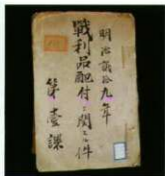 明治貳拾九年
戰利品配付ニ関スル件
第壹課